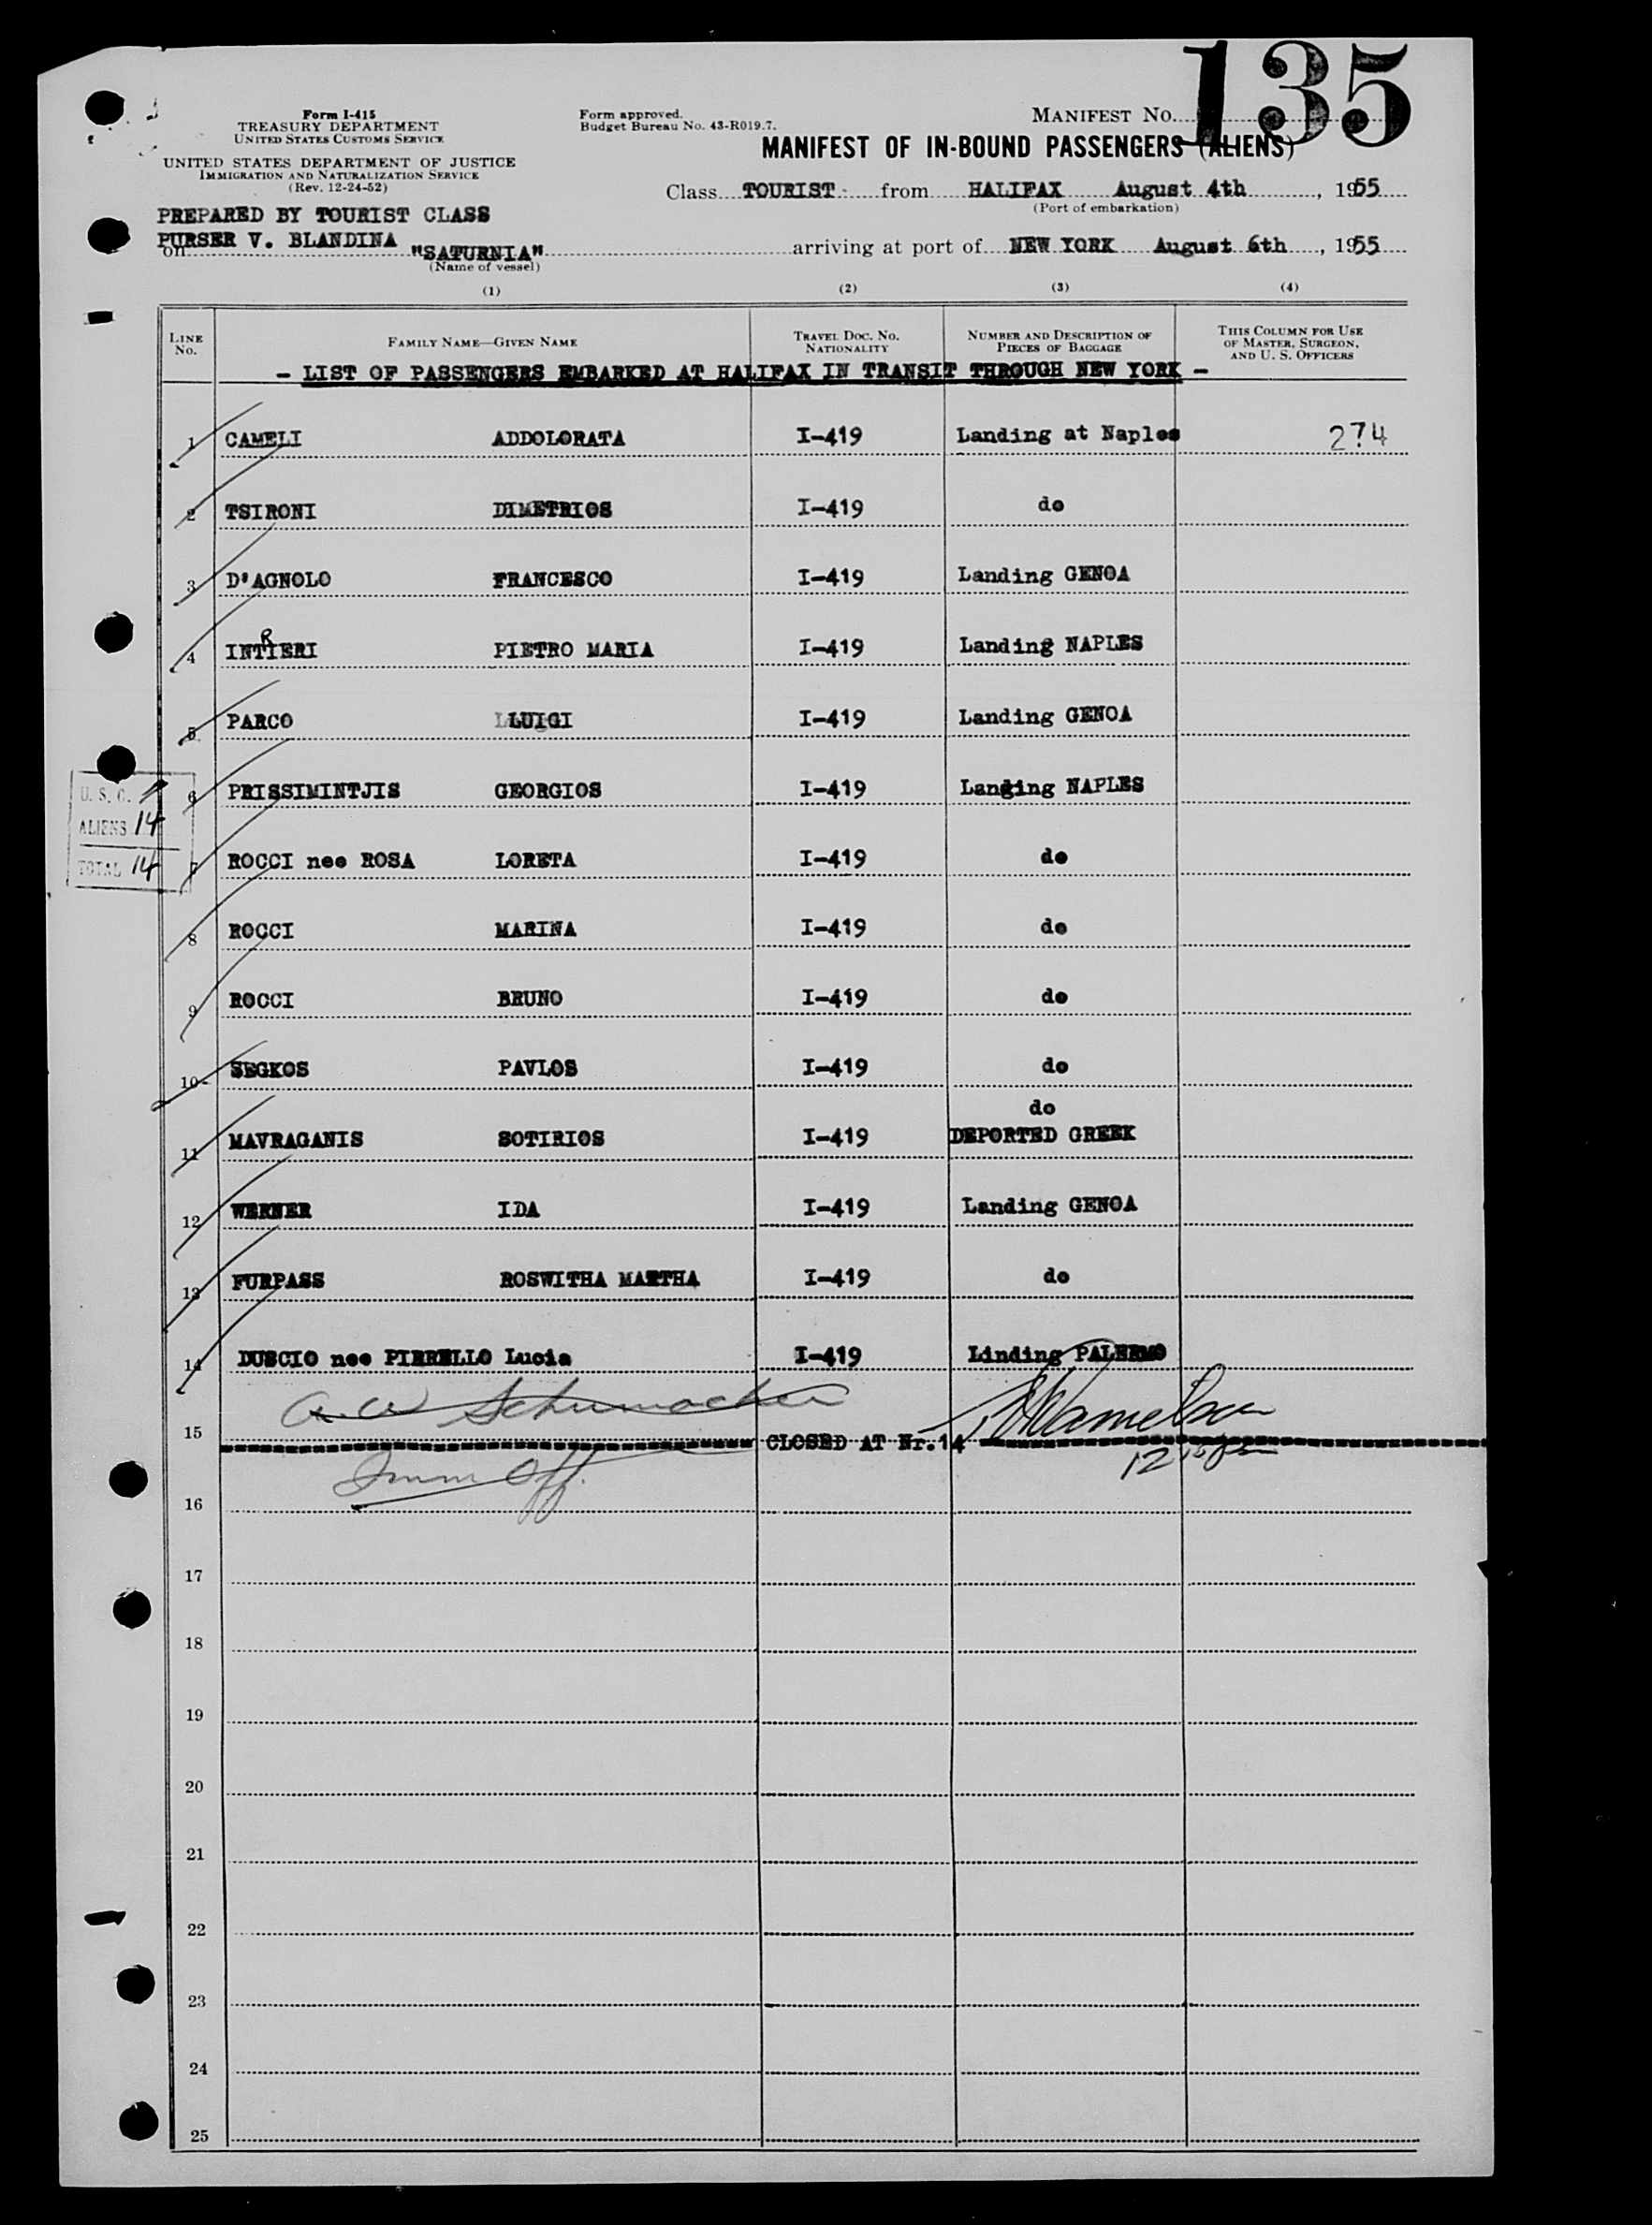 135
Form I-415
TREASURY DEPARTMENT
UNITED STATES CUSTOMS SERVICE
UNITED STATES DEPARTMENT OF JUSTICE
IMMIGRATION AND NATURALIZATION SERVICE
(Rev. 12-24-52)
Form approved.
Budget Bureau No. 43-R019.7.
MANIFEST NO.
MANIFEST OF IN-BOUND PASSENGERS (ALIENS)
Class TOURIST from HALIFAX August 4th, 1955
(Port of embarkation)
PREPARED BY TOURIST CLASS
PURSER V. BLANDINA
on "SATURNIA" arriving at port of NEW YORK August 6th, 1955
(Name of vessel)
(1) (2) (3) (4)
LINE NO. FAMILY NAME—GIVEN NAME TRAVEL DOC. NO. NATIONALITY NUMBER AND DESCRIPTION OF PIECES OF BAGGAGE THIS COLUMN FOR USE OF MASTER, SURGEON, AND U. S. OFFICERS
- LIST OF PASSENGERS EMBARKED AT HALIFAX IN TRANSIT THROUGH NEW YORK -
1 CAMELI ADDOLORATA I-419 Landing at Naples 274
2 TSIRONI DIMETRIOS I-419 do
3 D'AGNOLO FRANCESCO I-419 Landing GENOA
R
4 INTIERI PIETRO MARIA I-419 Landing NAPLES
5 PARCO LUIGI I-419 Landing GENOA
6 PRISSIMINTJIS GEORGIOS I-419 Landing NAPLES
U. S. C.
ALIENS 14
TOTAL 14
7 ROCCI nee ROSA LORETA I-419 do
8 ROCCI MARINA I-419 do
9 ROCCI BRUNO I-419 do
10 SEGKOS PAVLOS I-419 do
do
11 MAVRAGANIS SOTIRIOS I-419 DEPORTED GREEK
12 WERNER IDA I-419 Landing GENOA
13 FURPASS ROSWITHA MARTHA I-419 do
14 DUSCIO nee PIERRELLO Lucia I-419 Linding PALERMO
A. W. Schumacher
15 CLOSED AT Nr.14
Imm Off.
16
17
18
19
20
21
22
23
24
25